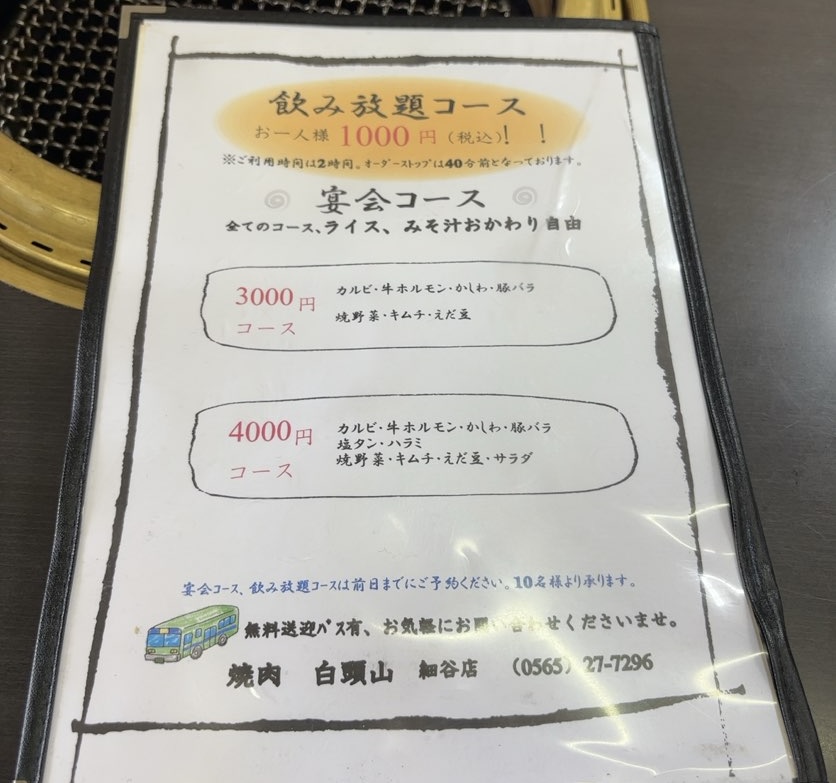 飲み放題コース
お一人様 1000 円 (税込)! !
※ご利用時間は2時間。オーダーストップは40分前となっております。
宴会コース
全てのコース、ライス、みそ汁おかわり自由
3000円
コース
カルビ・牛ホルモン・かしわ・豚バラ
焼野菜・キムチ・えだ豆
4000円
コース
カルビ・牛ホルモン・かしわ・豚バラ
塩タン・ハラミ
焼野菜・キムチ・えだ豆・サラダ
宴会コース、飲み放題コースは前日までにご予約ください。10名様より承ります。
無料送迎バス有、お気軽にお問い合わせくださいませ。
焼肉 白頭山 細谷店 (0565) 27-7296